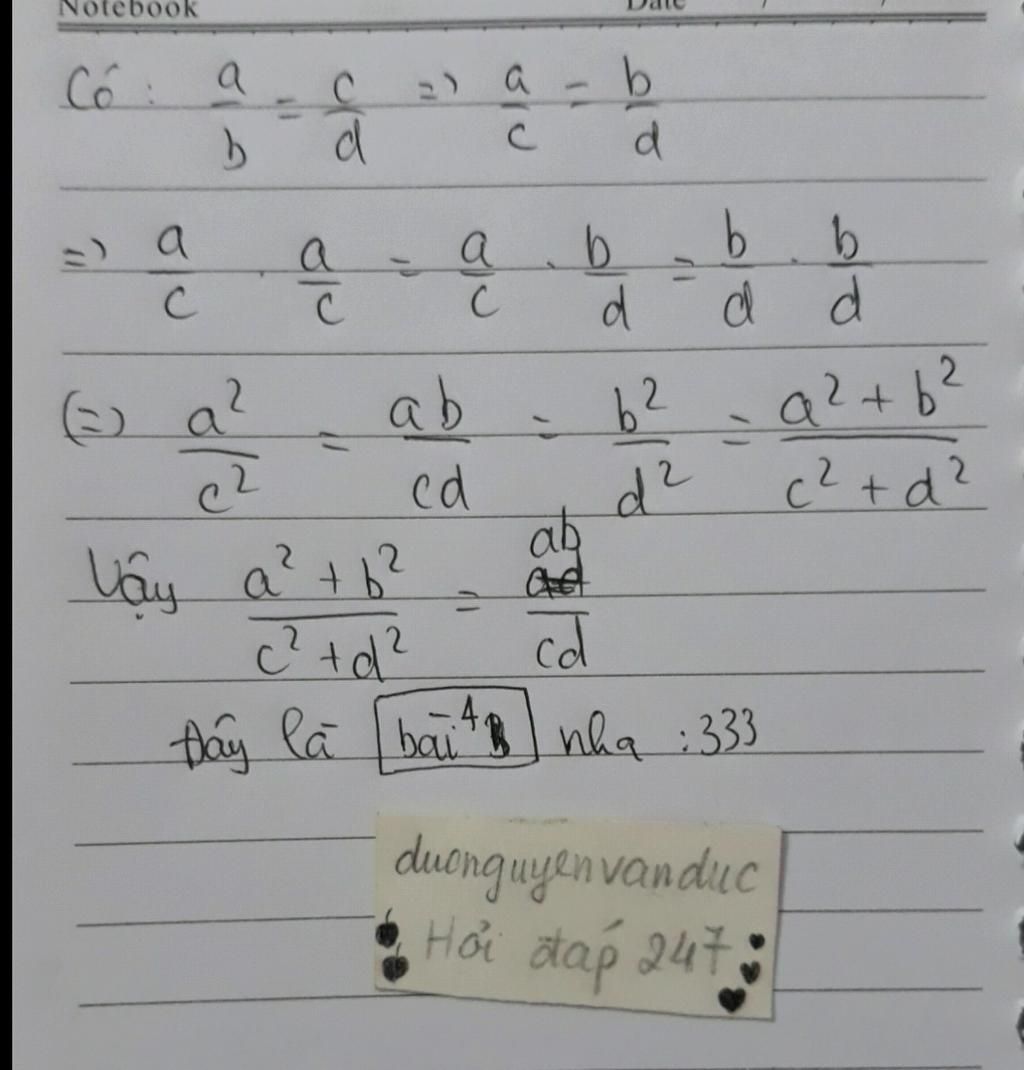 Notebook Date / /
Có : a/b = c/d => a/c = b/d
=> a/c . a/c = a/c . b/d = b/d . b/d
(=) a²/c² = ab/cd = b²/d² = a² + b²/c² + d²
Vậy a² + b²/c² + d² = ab/cd
Đây là bài 4 nha :333
duonguyenvanduc
Hỏi đáp 247